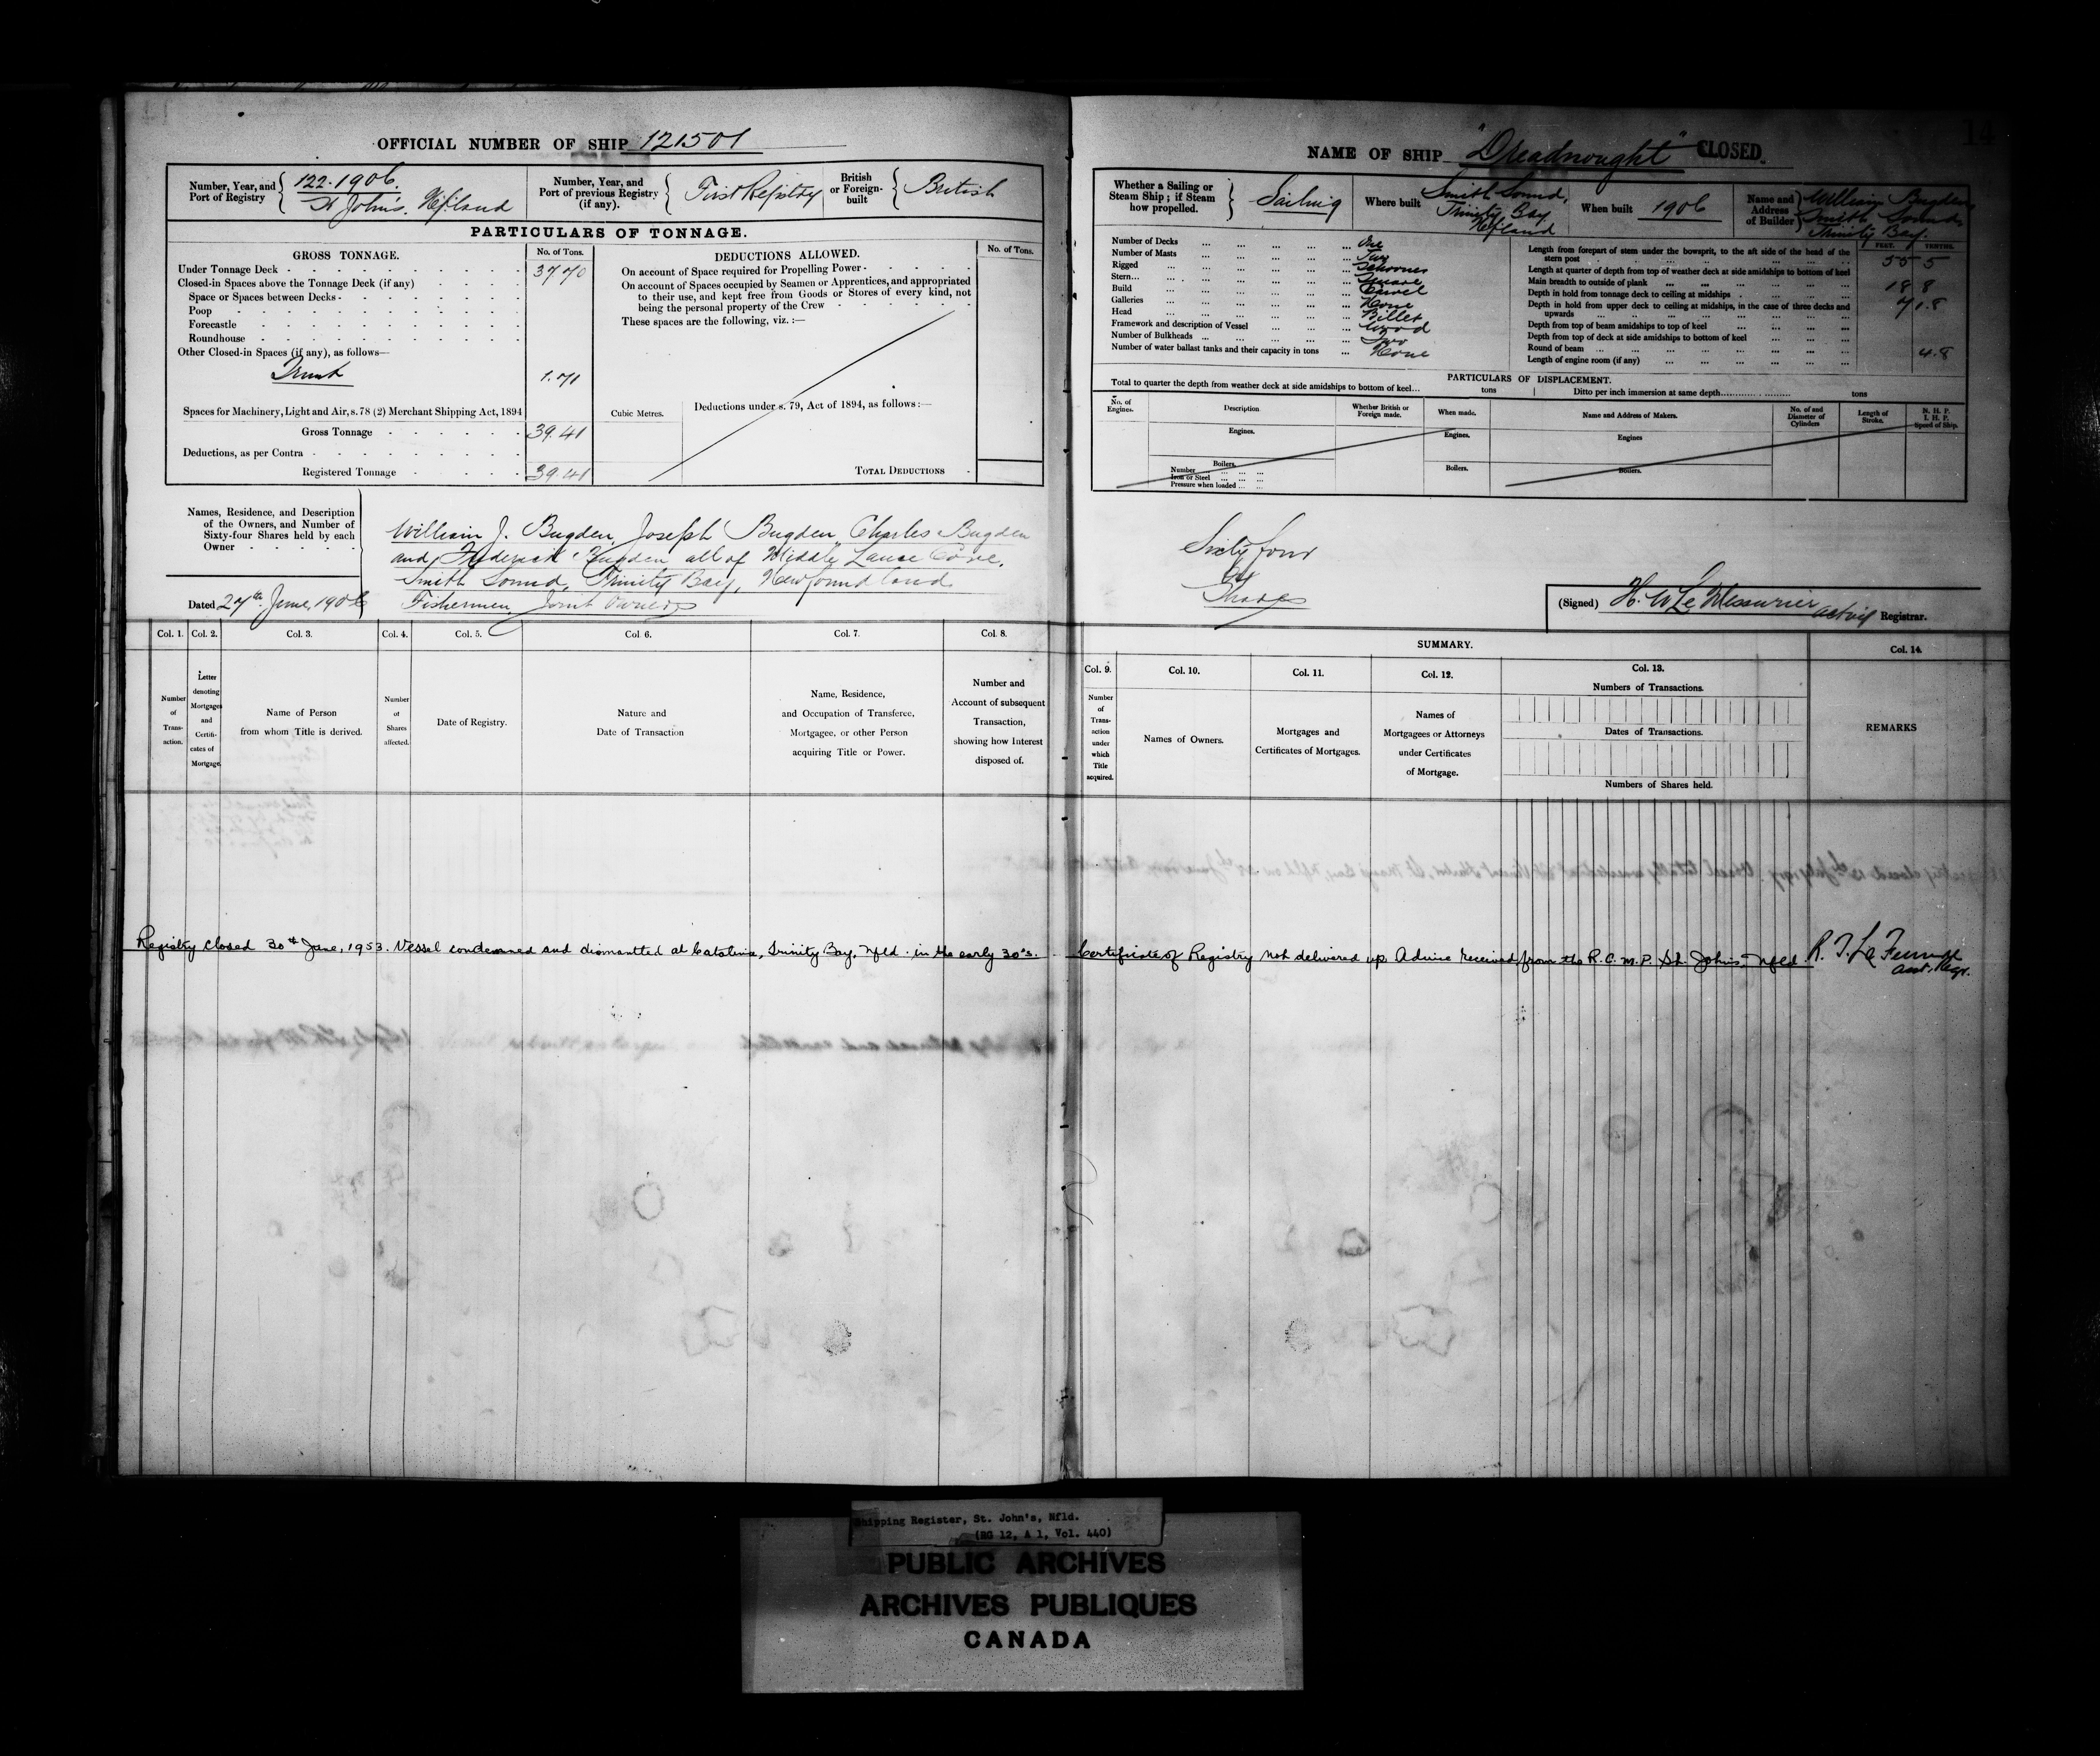 OFFICIAL NUMBER OF SHIP 121501
Number, Year, and Port of Registry
122-1906.
St John's. Nfland
Number, Year, and Port of previous Registry (if any).
First Registry
British or Foreign-built
British
PARTICULARS OF TONNAGE.
GROSS TONNAGE.
No. of Tons.
Under Tonnage Deck 37.70
Closed-in Spaces above the Tonnage Deck (if any)
Space or Spaces between Decks
Poop
Forecastle
Roundhouse
Other Closed-in Spaces (if any), as follows—
Trunk 1.71
Spaces for Machinery, Light and Air, s. 78 (2) Merchant Shipping Act, 1894
Gross Tonnage 39.41
Deductions, as per Contra
Registered Tonnage 39.41
DEDUCTIONS ALLOWED.
No. of Tons.
On account of Space required for Propelling Power
On account of Spaces occupied by Seamen or Apprentices, and appropriated
to their use, and kept free from Goods or Stores of every kind, not
being the personal property of the Crew
These spaces are the following, viz.:—
Cubic Metres.
Deductions under s. 79, Act of 1894, as follows:—
TOTAL DEDUCTIONS
Names, Residence, and Description
of the Owners, and Number of
Sixty-four Shares held by each
Owner
William J. Bugden, Joseph Bugden, Charles Bugden
and Frederick Bugden all of Middle Lance Cove,
Smith Sound, Trinity Bay, Newfoundland.
Fishermen Joint Owners
Dated 27th June, 1906
Col. 1. Col. 2. Col. 3. Col. 4. Col. 5. Col. 6. Col. 7. Col. 8.
Number of Transaction.
Letter denoting Mortgages and Certificates of Mortgage.
Name of Person
from whom Title is derived.
Number of Shares affected.
Date of Registry.
Nature and
Date of Transaction
Name, Residence,
and Occupation of Transferee,
Mortgagee, or other Person
acquiring Title or Power.
Number and
Account of subsequent
Transaction,
showing how Interest
disposed of.
Registry closed 30th June, 1953. Vessel condemned and dismantled at Catalina, Trinity Bay, Nfld. in the early 30's.
14
NAME OF SHIP "Dreadnought" CLOSED.
Whether a Sailing or Steam Ship; if Steam how propelled.
Sailing
Where built
Smith Sound,
Trinity Bay
Nfland
When built 1906
Name and Address of Builder
William Bugden,
Smith Sound,
Trinity Bay.
Number of Decks One
Number of Masts Two
Rigged Schooner
Stern Square
Build Carvel
Galleries None
Head Billet
Framework and description of Vessel Wood
Number of Bulkheads Two
Number of water ballast tanks and their capacity in tons None
FEET. TENTHS.
Length from forepart of stem under the bowsprit, to the aft side of the head of the
stern post 55 5
Length at quarter of depth from top of weather deck at side amidships to bottom of keel
Main breadth to outside of plank 18 8
Depth in hold from tonnage deck to ceiling at midships 7 1.8
Depth in hold from upper deck to ceiling at midships, in the case of three decks and
upwards
Depth from top of beam amidships to top of keel
Depth from top of deck at side amidships to bottom of keel
Round of beam 4.8
Length of engine room (if any)
PARTICULARS OF DISPLACEMENT.
Total to quarter the depth from weather deck at side amidships to bottom of keel... tons Ditto per inch immersion at same depth... tons
No. of Engines.
Description
Whether British or Foreign made.
When made.
Name and Address of Makers.
No. of and Diameter of Cylinders
Length of Stroke.
N. H. P.
I. H. P.
Speed of Ship.
Engines. Engines. Engines
Boilers. Boilers. Boilers.
Number
Iron or Steel
Pressure when loaded
Sixty four
64
Shares
(Signed) H. W Le Messurier acting Registrar.
SUMMARY.
Col. 9. Col. 10. Col. 11. Col. 12. Col. 13. Col. 14.
Number of Transaction under which Title acquired.
Names of Owners.
Mortgages and
Certificates of Mortgages.
Names of
Mortgagees or Attorneys
under Certificates
of Mortgage.
Numbers of Transactions.
Dates of Transactions.
Numbers of Shares held.
REMARKS
Certificate of Registry not delivered up. Advice received from the R.C.M.P. St. John's, Nfld
Shipping Register, St. John's, Nfld.
(RG 12, A 1, Vol. 440)
PUBLIC ARCHIVES
ARCHIVES PUBLIQUES
CANADA